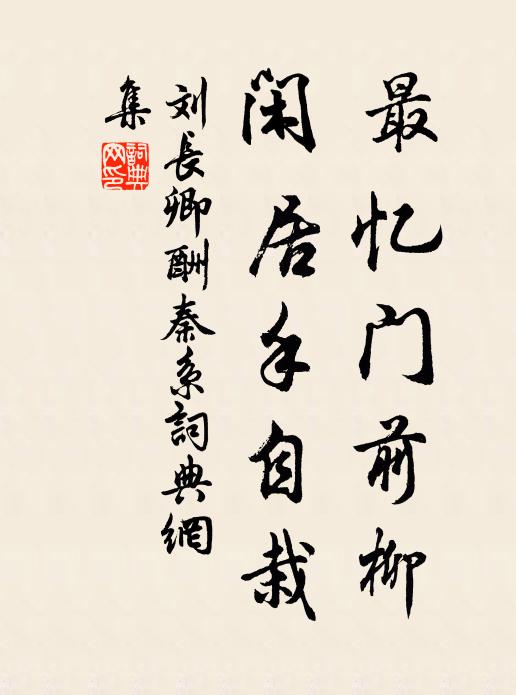 最忆门前柳
闲居手自栽
刘长卿酬秦系詞典網
集
詞典网印